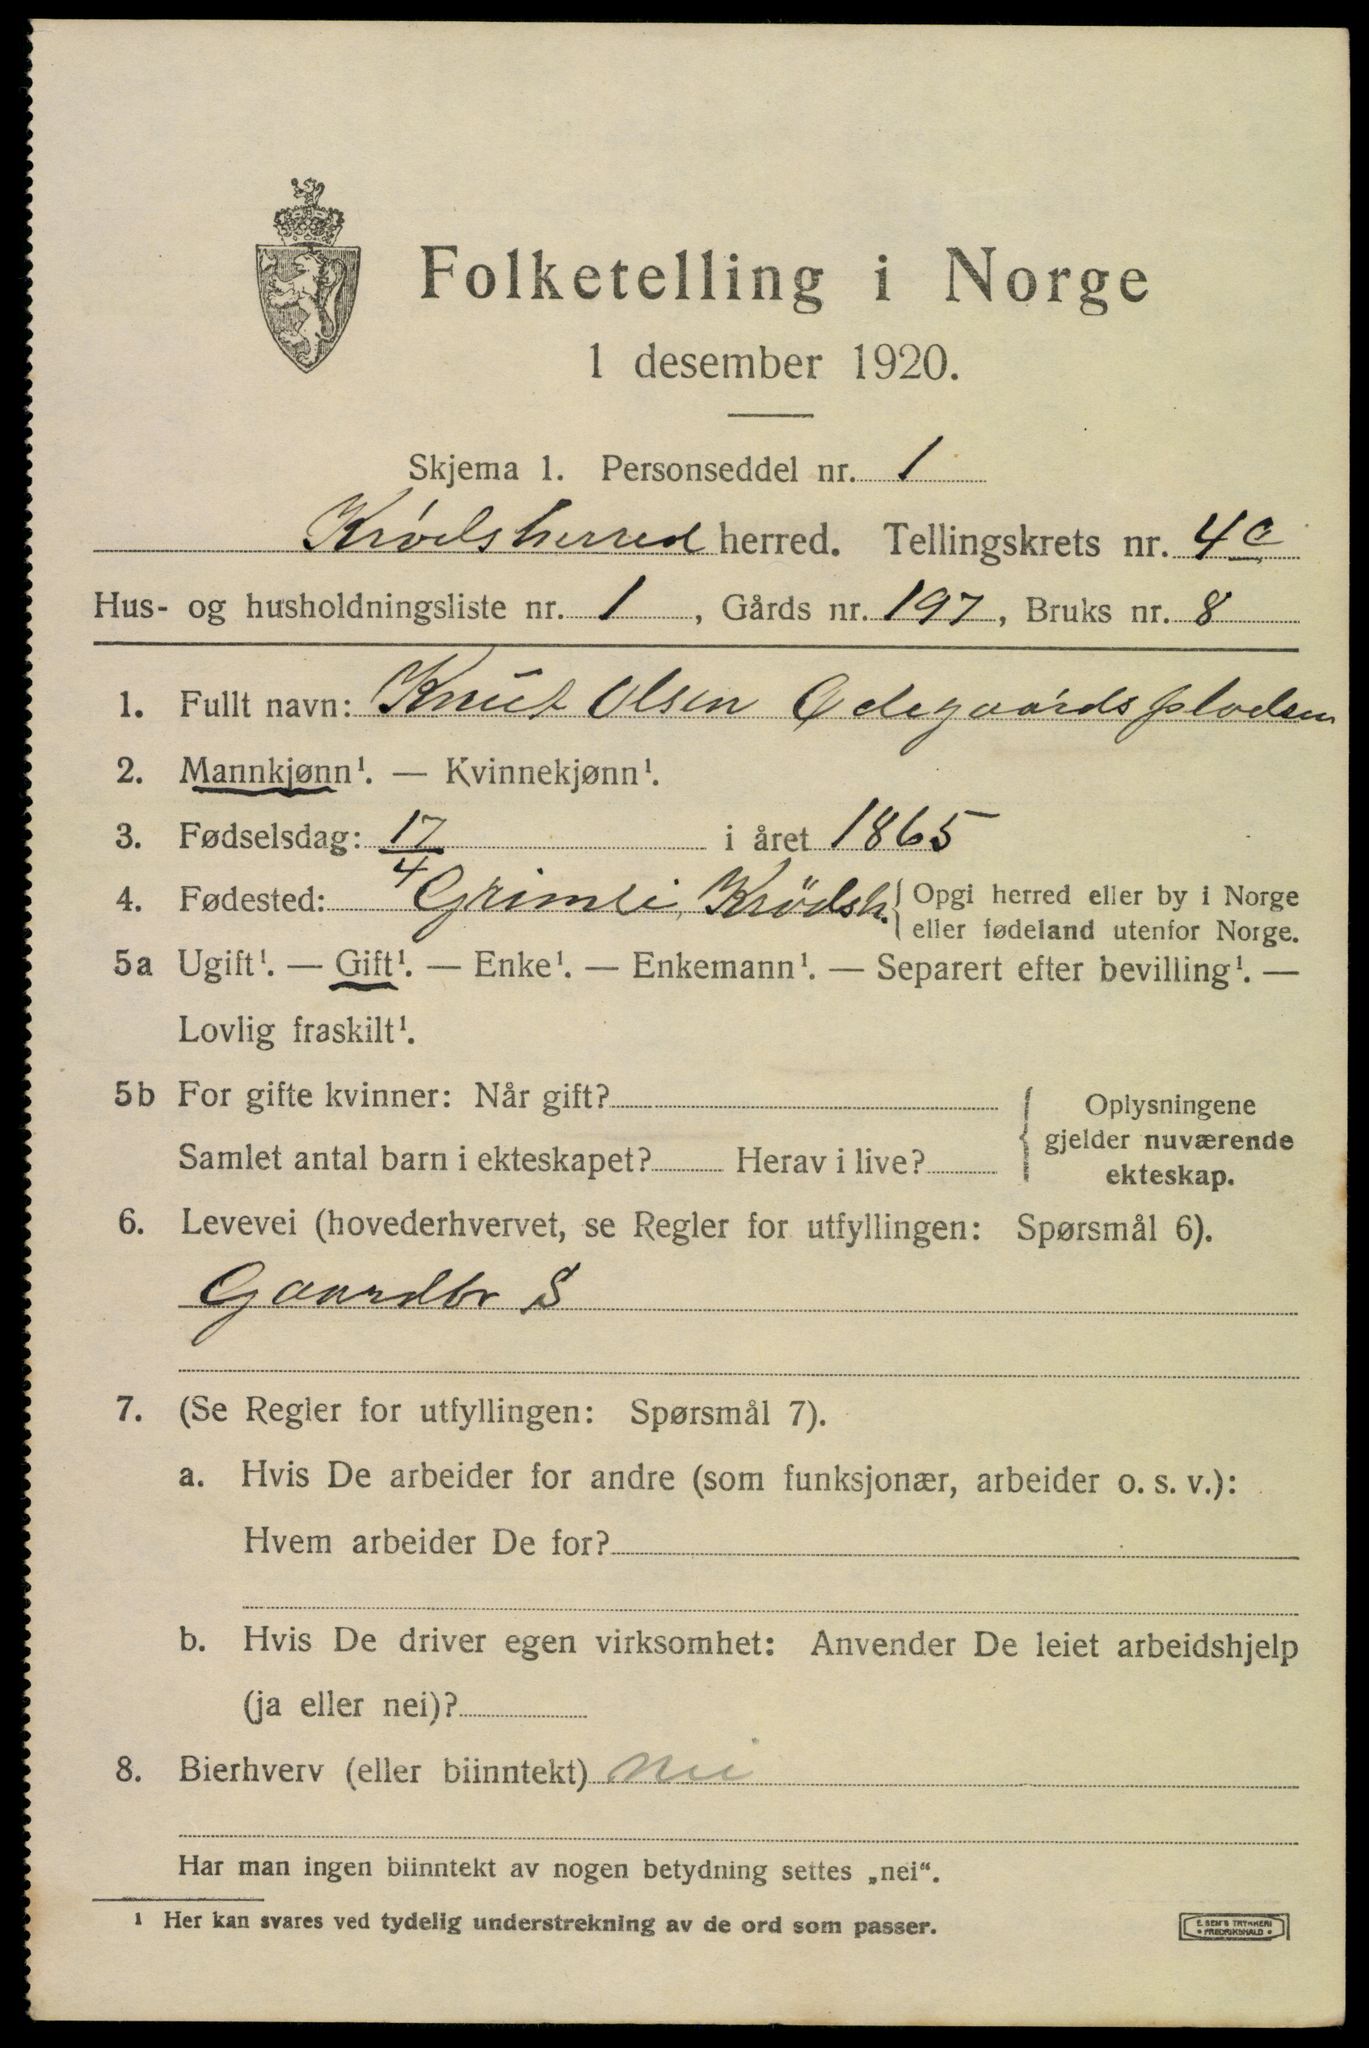 Folketelling i Norge
1 desember 1920.
Skjema 1. Personseddel nr. 1
Krødsherred herred. Tellingskrets nr. 4c
Hus- og husholdningsliste nr. 1, Gårds nr. 197, Bruks nr. 8
1. Fullt navn: Knut Olsen Ødegaårds
2. Mannkjønn¹. — Kvinnekjønn¹.
3. Fødselsdag: 17/4 i året 1865
4. Fødested: Grimli, Krödsh. { Opgi herred eller by i Norge
eller fødeland utenfor Norge.
5a Ugift¹. — Gift¹. — Enke¹. — Enkemann¹. — Separert efter bevilling¹. —
Lovlig fraskilt¹.
5b For gifte kvinner: Når gift?
Samlet antal barn i ekteskapet? Herav i live?
{ Oplysningene
gjelder nuværende
ekteskap.
6. Levevei (hovederhvervet, se Regler for utfyllingen: Spørsmål 6).
Gaardbr S
7. (Se Regler for utfyllingen: Spørsmål 7).
a. Hvis De arbeider for andre (som funksjonær, arbeider o. s. v.):
Hvem arbeider De for?
b. Hvis De driver egen virksomhet: Anvender De leiet arbeidshjelp
(ja eller nei)?
8. Bierhverv (eller biinntekt) nei
Har man ingen biinntekt av nogen betydning settes „nei“.
¹ Her kan svares ved tydelig understrekning av de ord som passer.
E. SEM'S TRYKKERI
• FREDRIKSHALD •